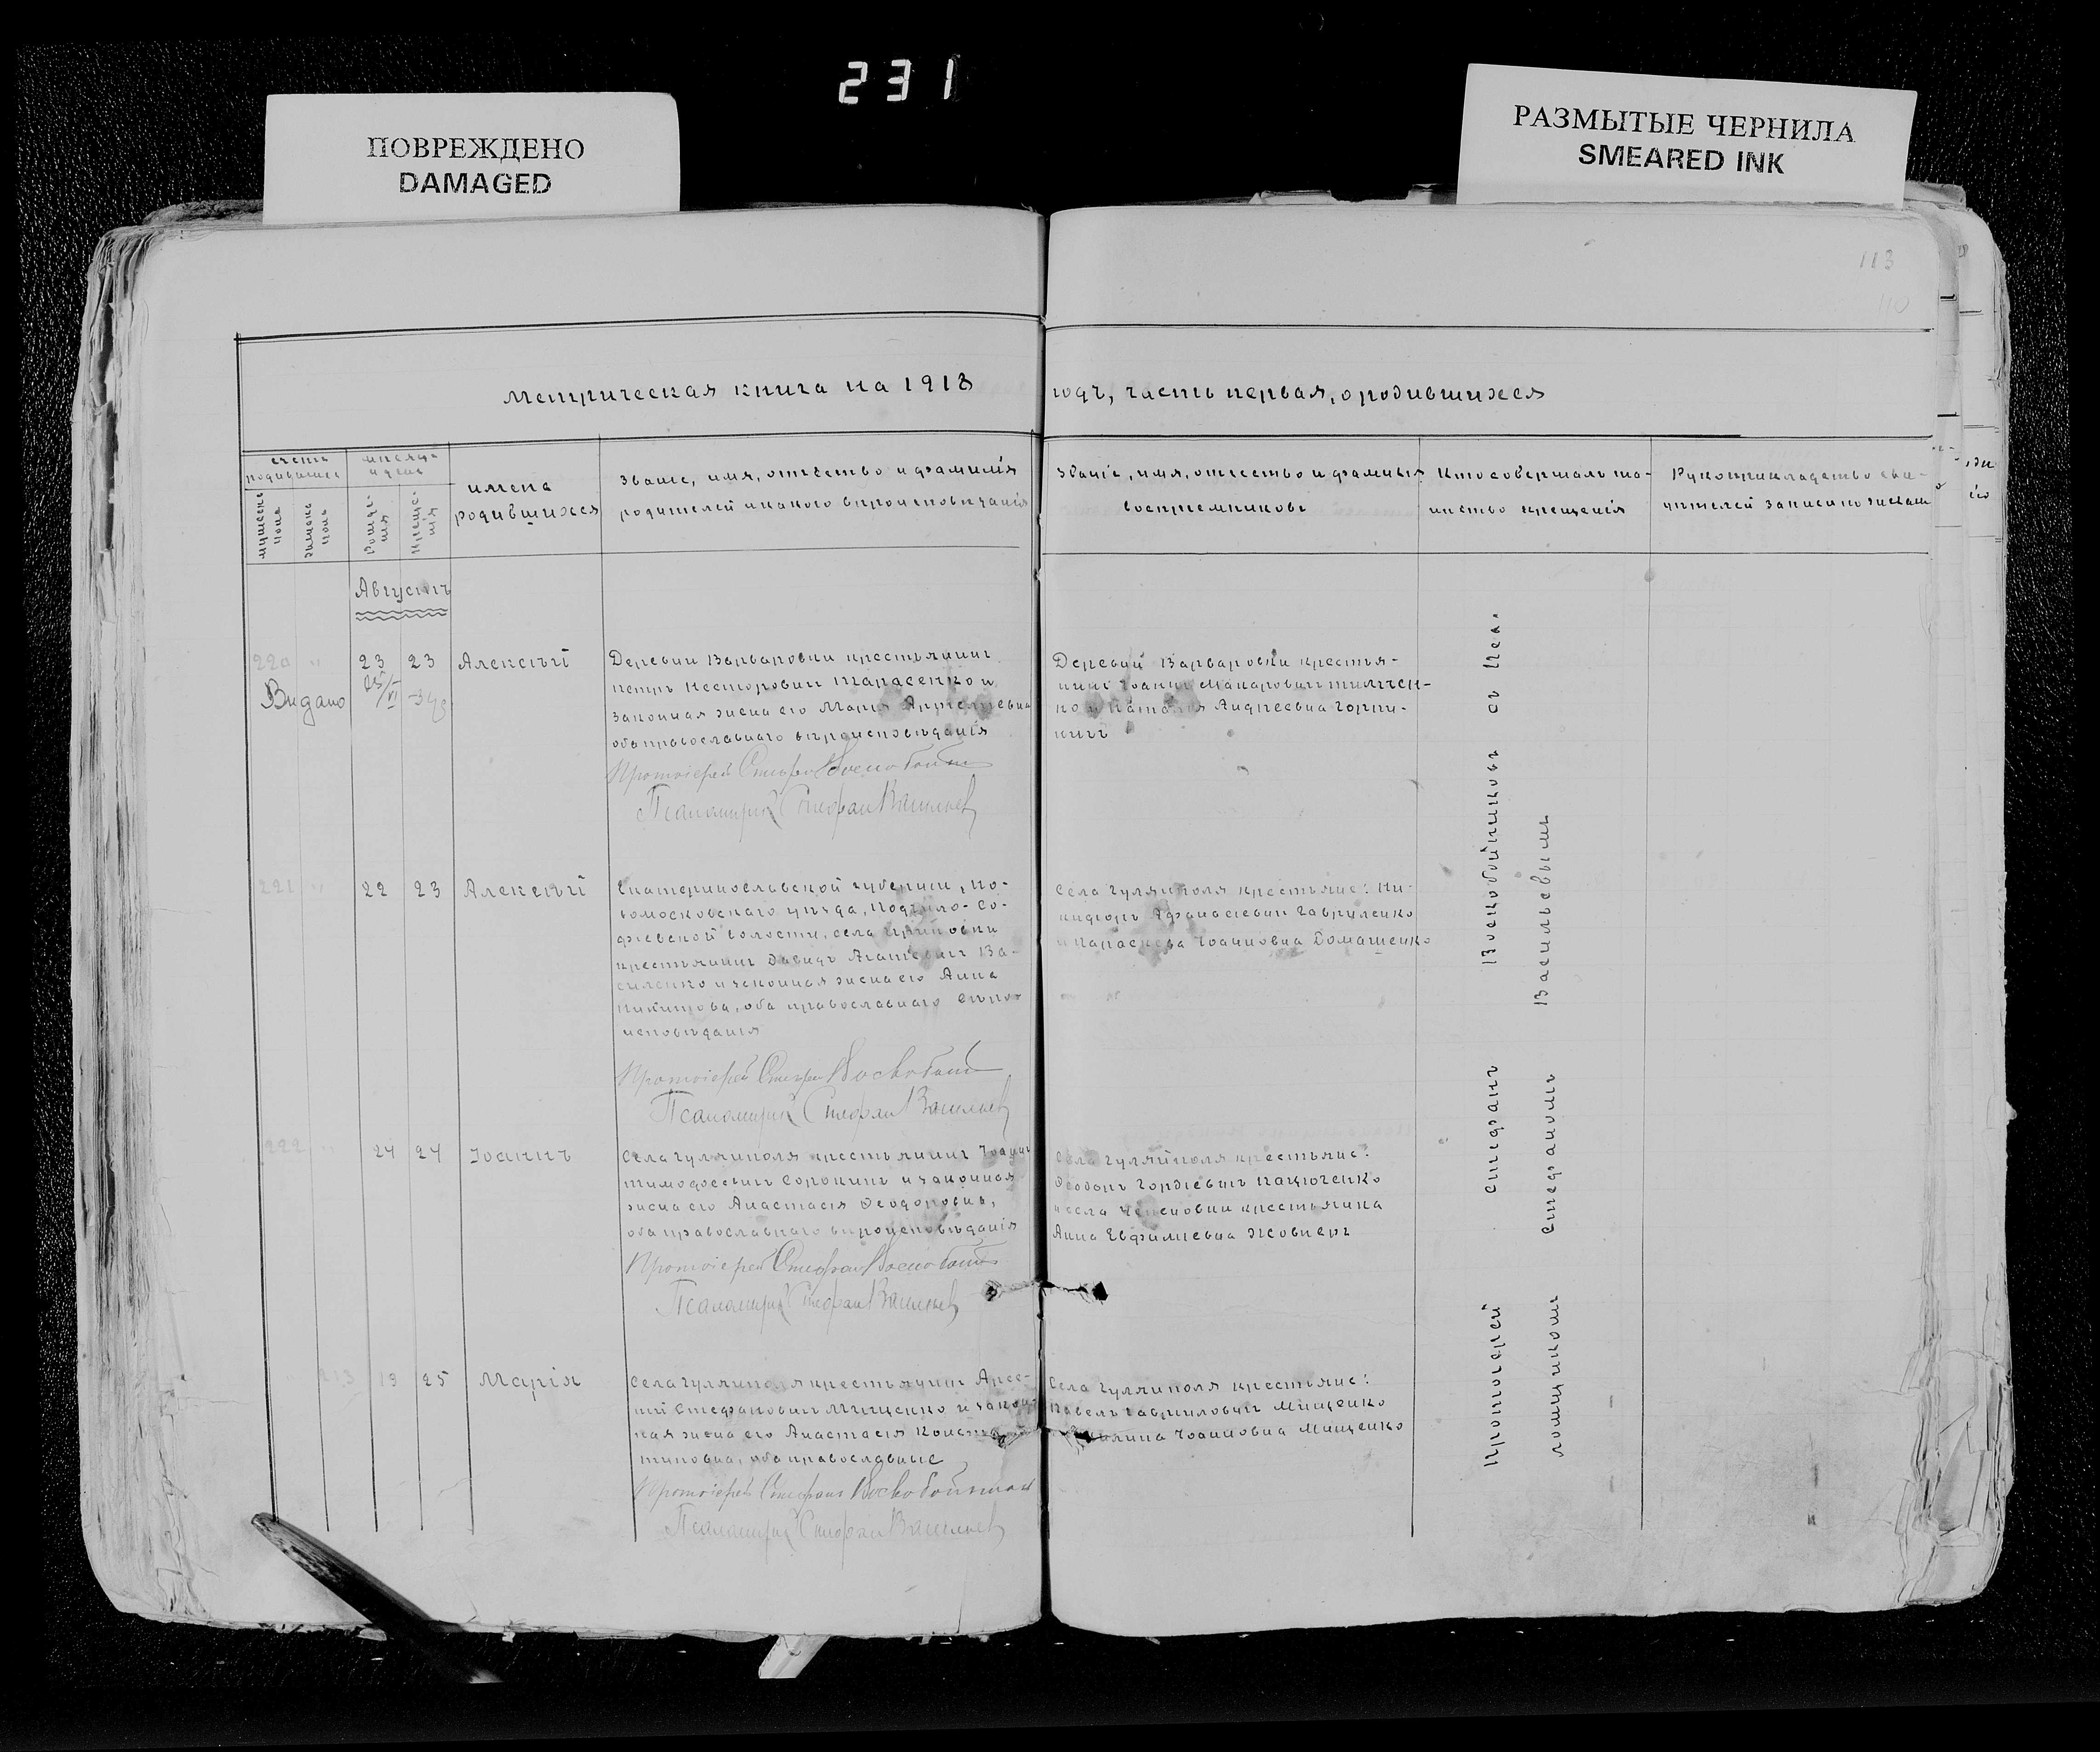 231
ПОВРЕЖДЕНО
DAMAGED
РАЗМЫТЫЕ ЧЕРНИЛА
SMEARED INK
113
110
Метрическая книга на 1918
годъ, часть первая, о родившихся
счетъ
родившихся
мужеска
пола
женска
пола
мѣсяцъ
и день
Рожде-
нія
Креще-
нія
имена
родившихся
Званіе, имя, отчество и фамилія
родителей и какого вѣроисповѣданія
Званіе, имя, отчество и фамилія
воспріемниковъ
Кто совершалъ та-
инство крещенія
Рукоприкладство сви-
дѣтелей записи по желан
Августъ
220 " 23 23 Алексѣй
Видано
Деревни Варваровки крестьянинъ
Петръ Несторовичъ Тарасенко и
законная жена его Марія
оба православнаго вѣроисповѣданія
Протоіерей Стефанъ Воскобойн
Псаломщикъ Стефанъ Васильевъ
Деревни Варваровки крестья-
нинъ Іоаннъ Макаровичъ
но и Наталія Андреевна
221 " 22 23 Алексѣй
Екатеринославской губерніи, Но-
вомосковскаго уѣзда, со-
фіевской волости, села
крестьянинъ Давидъ Ва-
силенко и законная жена его Анна
Никитова, оба православнаго вѣро-
исповѣданія
Протоіерей Стефанъ Воскобойн
Псаломщикъ Стефанъ Васильевъ
Села Гуляйполя крестьяне: Ни-
кифоръ Афанасіевичъ Гавриленко
и Параскева Іоанновна Домашенко
222 " 24 24 Іоаннъ
Села Гуляйполя крестьянинъ Іоаннъ
Тимофеевичъ Сорокинъ и законная
жена его Анастасія Феодоровна,
оба православнаго вѣроисповѣданія
Протоіерей Стефанъ Воскобойн
Псаломщикъ Стефанъ Васильевъ
Села Гуляйполя крестьяне:
Феодоръ Гордіевичъ
и села крестьянка
Анна Евфиміевна Жовнеръ
223 19 25 Марія
Села Гуляйполя крестьянинъ Арсе-
ній Стефановичъ Мищенко и закон-
ная жена его Анастасія Конста
тиновна, оба православные
Протоіерей Стефанъ Воскобойниковъ
Псаломщикъ Стефанъ Васильевъ
Села Гуляйполя крестьяне:
Павелъ Гавриловичъ Мищенко
Іоанновна Мищенко
Протоіерей Стефанъ Воскобойниковъ съ Пса-
ломщикомъ Стефаномъ Васильевымъ